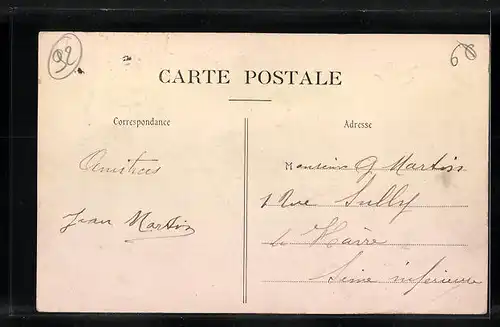 92
68
CARTE POSTALE
Correspondance
Adresse
Amitiés
Jean Martin
Monsieur G Martin
1 Rue Sully
Le Havre
Seine inférieure